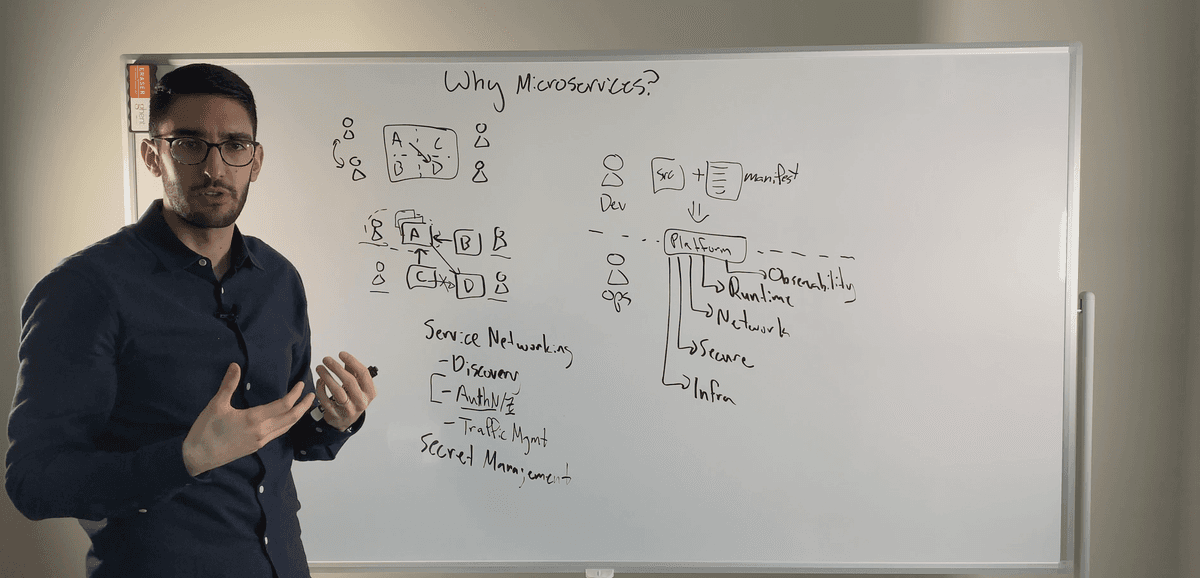 Why Microservices?
ERASER
A C
B D
A
B
C
D
Service Networking
- Discovery
- AuthN/Z
- Traffic Mgmt
Secret Management
Src + manifest
Dev
Platform
Ops
Observability
Runtime
Network
Secure
Infra